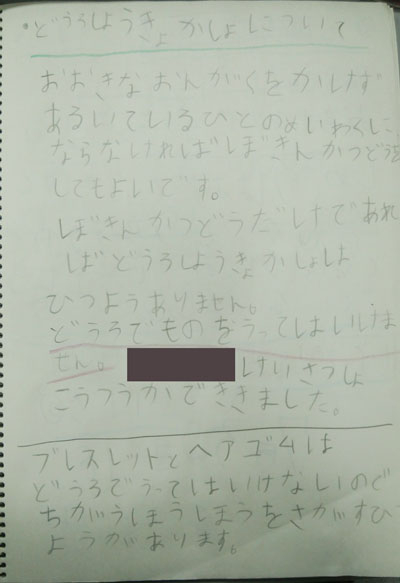 ・どうろしようきょかしょについて
おおきなおんがくをかけず
あるいているひとのめいわくに
ならなければぼきんかつどうを
してもよいです。
ぼきんかつどうだけであれ
ばどうろしようきょかしょは
ひつようありません。
どうろでものをうってはいけま
せん。 けいさつしょ
こうつうかでききました。
ブレスレットとヘアゴムは
どうろでうってはいけないので
ちがうほうほうをさがすひつ
ようがあります。